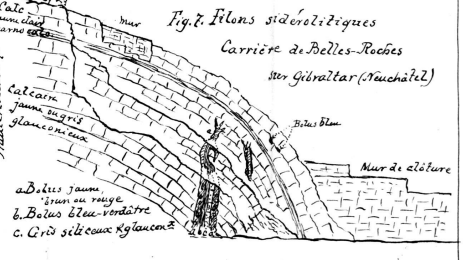 Calc
mur
Fig. 7. Filons sidérolitiques
Carrière de Belles-Roches
sur Gibraltar (Neuchâtel)
Calcaire
jaune ou gris
glauconieux
Bolus bleu
Mur de clôture
a. Bolus jaune,
brun ou rouge
b. Bolus bleu-verdâtre
c. Grès siliceux & glaucon.x